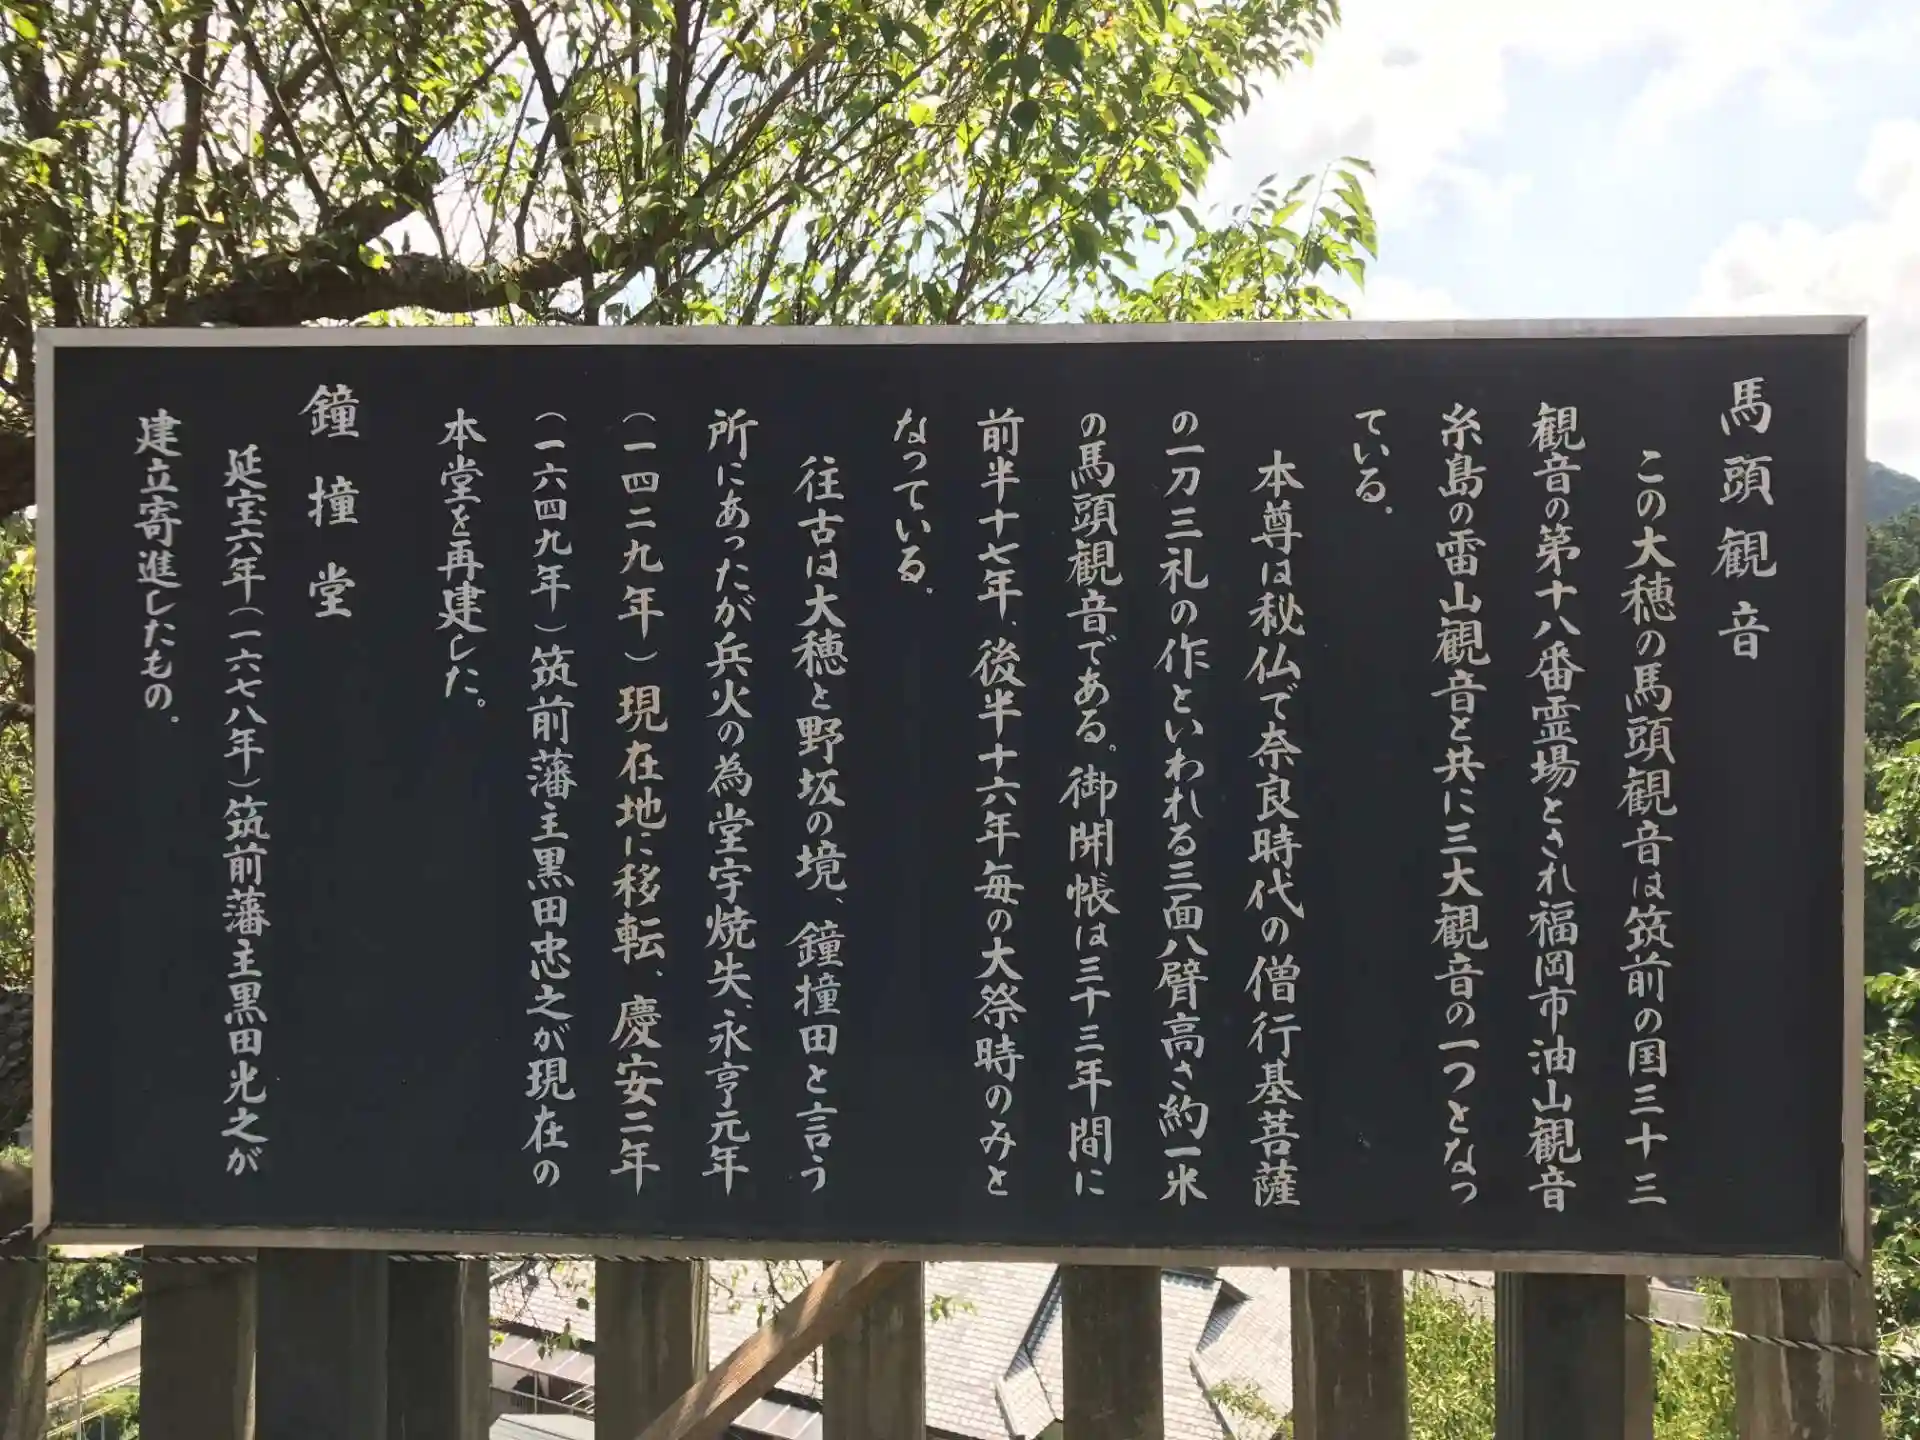 馬頭観音
この大穂の馬頭観音は筑前の国三十三
観音の第十八番霊場とされ福岡市油山観音
糸島の雷山観音と共に三大観音の一つとなっ
ている.
本尊は秘仏で奈良時代の僧行基菩薩
の一刀三礼の作といわれる三面八臂高さ約一米
の馬頭観音である。御開帳は三十三年間に
前半十七年、後半十六年毎の大祭時のみと
なっている.
往古は大穂と野坂の境、鐘撞田と言う
所にあったが兵火の為堂宇焼失、永亨元年
(一四二九年)現在地に移転、慶安二年
(一六四九年)筑前藩主黒田忠之が現在の
本堂を再建した。
鐘撞堂
延宝六年(一六七八年)筑前藩主黒田光之が
建立寄進したもの.